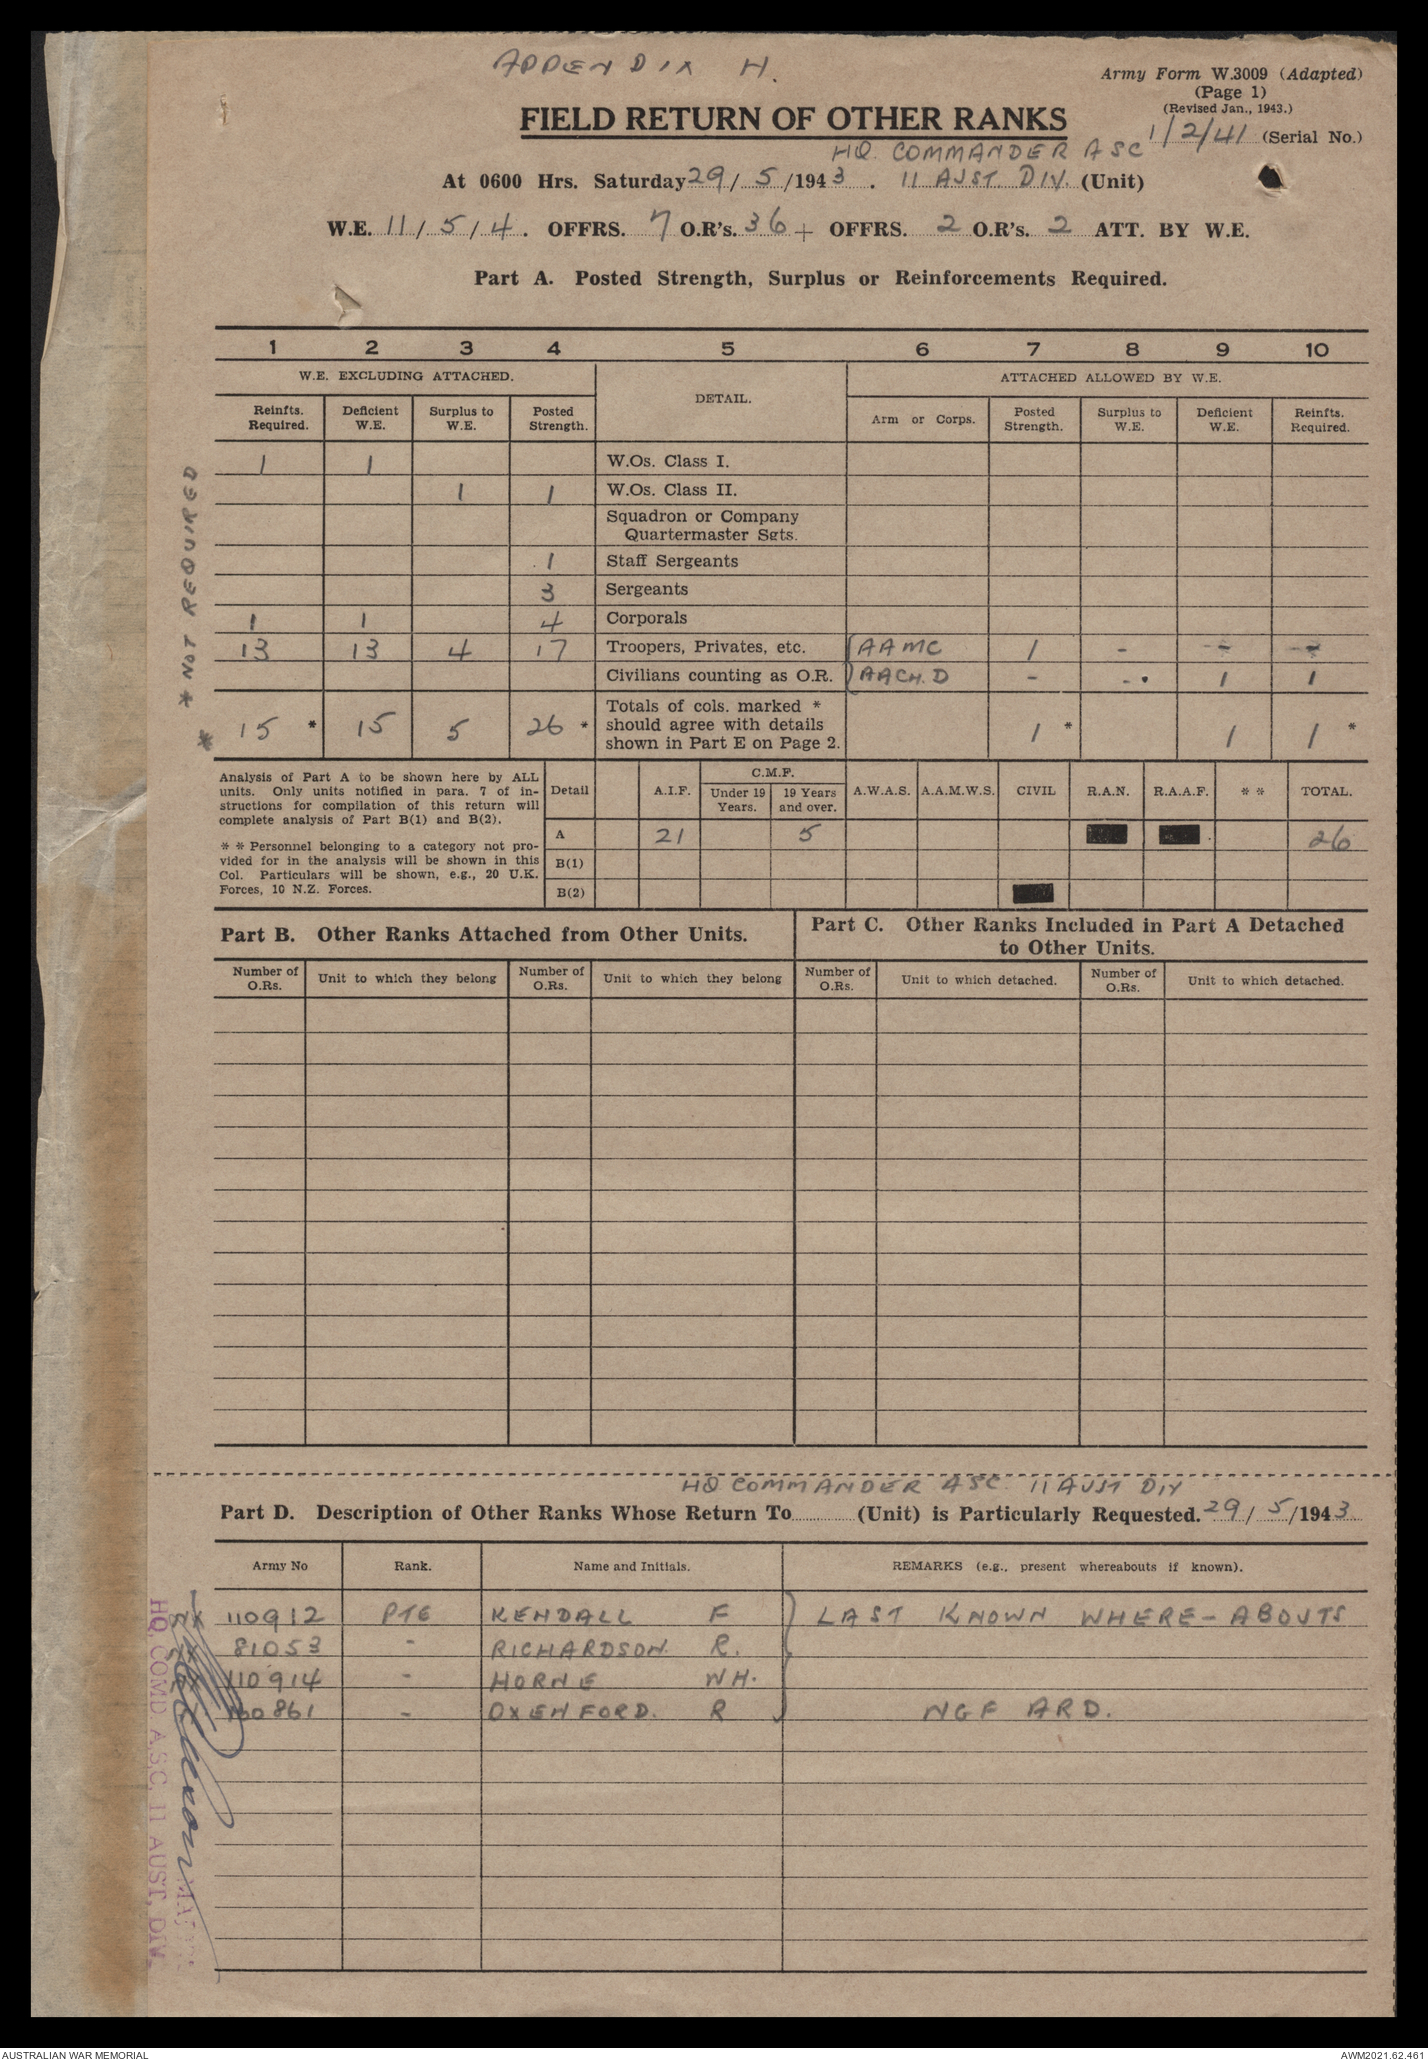 APPENDIX H.
Army Form W.3009 (Adapted)
(Page 1)
(Revised Jan., 1943.)
FIELD RETURN OF OTHER RANKS
1/2/41 (Serial No.)
HQ. COMMANDER ASC
At 0600 Hrs. Saturday 29/5/1943. 11 AUST. DIV. (Unit)
W.E. 11/5/4. OFFRS. 7 O.R's. 36 + OFFRS. 2 O.R's. 2 ATT. BY W.E.
Part A. Posted Strength, Surplus or Reinforcements Required.
1 2 3 4 5 6 7 8 9 10
W.E. EXCLUDING ATTACHED. DETAIL. ATTACHED ALLOWED BY W.E.
Reinfts. Required. Deficient W.E. Surplus to W.E. Posted Strength. Arm or Corps. Posted Strength. Surplus to W.E. Deficient W.E. Reinfts. Required.
1 1 W.Os. Class I.
1 1 W.Os. Class II.
Squadron or Company
Quartermaster Sgts.
1 Staff Sergeants
3 Sergeants
1 1 4 Corporals
13 13 4 17 Troopers, Privates, etc. AAMC 1 - - -
Civilians counting as O.R. AACH.D - - 1 1
* NOT REQUIRED
Totals of cols. marked *
should agree with details
shown in Part E on Page 2.
* 15 * 15 5 26 * 1 * 1 1 *
Analysis of Part A to be shown here by ALL
units. Only units notified in para. 7 of in-
structions for compilation of this return will
complete analysis of Part B(1) and B(2).
* * Personnel belonging to a category not pro-
vided for in the analysis will be shown in this
Col. Particulars will be shown, e.g., 20 U.K.
Forces, 10 N.Z. Forces.
Detail A.I.F. C.M.F. Under 19 Years. 19 Years and over. A.W.A.S. A.A.M.W.S. CIVIL R.A.N. R.A.A.F. * * TOTAL.
A 21 5 26
B(1)
B(2)
Part B. Other Ranks Attached from Other Units.
Part C. Other Ranks Included in Part A Detached
to Other Units.
Number of O.Rs. Unit to which they belong Number of O.Rs. Unit to which they belong Number of O.Rs. Unit to which detached. Number of O.Rs. Unit to which detached.
HQ COMMANDER ASC. 11 AUST DIV
Part D. Description of Other Ranks Whose Return To (Unit) is Particularly Requested. 29/5/1943
Army No Rank. Name and Initials. REMARKS (e.g., present whereabouts if known).
110912 PTE KENDALL F LAST KNOWN WHERE-ABOUTS
81053 - RICHARDSON. R.
110914 - HORNE WH.
- OXENFORD. R NGF ARD.
HQ, COMD. A.S.C. 11 AUST, DIV.
AUSTRALIAN WAR MEMORIAL
AWM2021.62.461